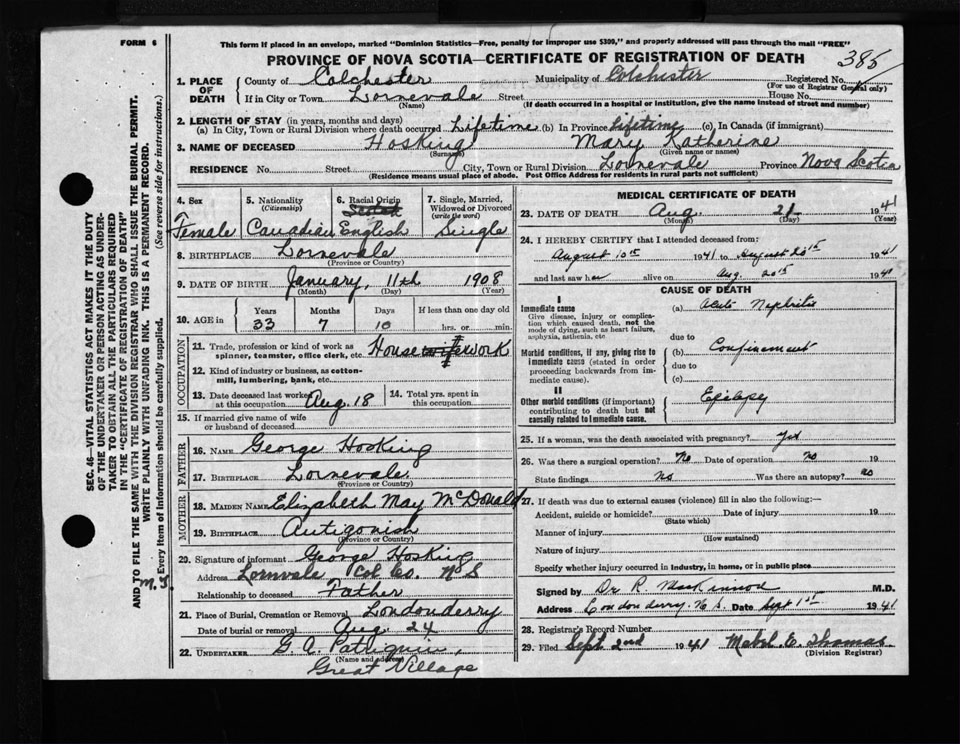 FORM 6
This form if placed in an envelope, marked "Dominion Statistics—Free, penalty for improper use $300," and properly addressed will pass through the mail "FREE"
PROVINCE OF NOVA SCOTIA—CERTIFICATE OF REGISTRATION OF DEATH
385
1. PLACE OF DEATH County of Colchester Municipality of Colchester Registered No.
(For use of Registrar General only)
If in City or Town Lornevale Street House No.
(Name) (If death occurred in a hospital or institution, give the name instead of street and number)
2. LENGTH OF STAY (in years, months and days)
(a) In City, Town or Rural Division where death occurred Lifetime (b) In Province Lifetime (c) In Canada (if immigrant)
3. NAME OF DECEASED Hosking Mary Katherine
(Surname) (Given name or names)
RESIDENCE No. Street City, Town or Rural Division Lornevale Province Nova Scotia
(Residence means usual place of abode. Post Office Address for residents in rural parts not sufficient)
4. Sex Female
5. Nationality (Citizenship) Canadian
6. Racial Origin English
7. Single, Married, Widowed or Divorced (write the word) Single
8. BIRTHPLACE Lornevale
(Province or Country)
9. DATE OF BIRTH January, 11th 1908
(Month) (Day) (Year)
10. AGE in Years Months Days If less than one day old
33 7 10 hrs. or min.
OCCUPATION
11. Trade, profession or kind of work as spinner, teamster, office clerk, etc. Housework
12. Kind of industry or business, as cotton-mill, lumbering, bank, etc.
13. Date deceased last worked at this occupation Aug. 18
14. Total yrs. spent in this occupation.
15. If married give name of wife or husband of deceased
FATHER
16. NAME George Hosking
17. BIRTHPLACE Lornevale
(Province or Country)
MOTHER
18. MAIDEN NAME Elizabeth May McDonald
19. BIRTHPLACE Antigonish
(Province or Country)
20. Signature of informant George Hosking
Address Lornvale Col Co. N S
Relationship to deceased Father
21. Place of Burial, Cremation or Removal Londonderry
Date of burial or removal Aug 24
22. UNDERTAKER G. C.
(Name and address)
Great Village
MEDICAL CERTIFICATE OF DEATH
23. DATE OF DEATH Aug. 21 1941
(Month) (Day) (Year)
24. I HEREBY CERTIFY that I attended deceased from:
August 10th 1941 to August 20th 1941
and last saw her alive on Aug. 20th 1941
CAUSE OF DEATH
I
Immediate cause (a) Acute Nephritis
Give disease, injury or complication which caused death, not the mode of dying, such as heart failure, asphyxia, asthenia, etc
due to
Morbid conditions, if any, giving rise to immediate cause (stated in order proceeding backwards from immediate cause). (b) Confinement
due to
(c)
II
Other morbid conditions (if important) contributing to death but not causally related to immediate cause. Epilepsy
25. If a woman, was the death associated with pregnancy? Yes
26. Was there a surgical operation? No Date of operation no 19
State findings No Was there an autopsy? no
27. If death was due to external causes (violence) fill in also the following:—
Accident, suicide or homicide? Date of injury 19
(State which)
Manner of injury
(How sustained)
Nature of injury
Specify whether injury occurred in industry, in home, or in public place
Signed by Dr R. MacKinnon M.D.
Address Londonderry. N.S. Date Sept 1st 1941
28. Registrar's Record Number
29. Filed Sept. 2nd 1941 Mabel. E. Thomas
(Division Registrar)
SEC. 46—VITAL STATISTICS ACT MAKES IT THE DUTY
OF THE UNDERTAKER OR PERSON ACTING AS UNDER-
TAKER TO OBTAIN ALL THE PARTICULARS REQUIRED
IN THE "CERTIFICATE OF REGISTRATION OF DEATH"
AND TO FILE THE SAME WITH THE DIVISION REGISTRAR WHO SHALL ISSUE THE BURIAL PERMIT.
WRITE PLAINLY WITH UNFADING INK. THIS IS A PERMANENT RECORD.
Every item of information should be carefully supplied. (See reverse side for instructions.)